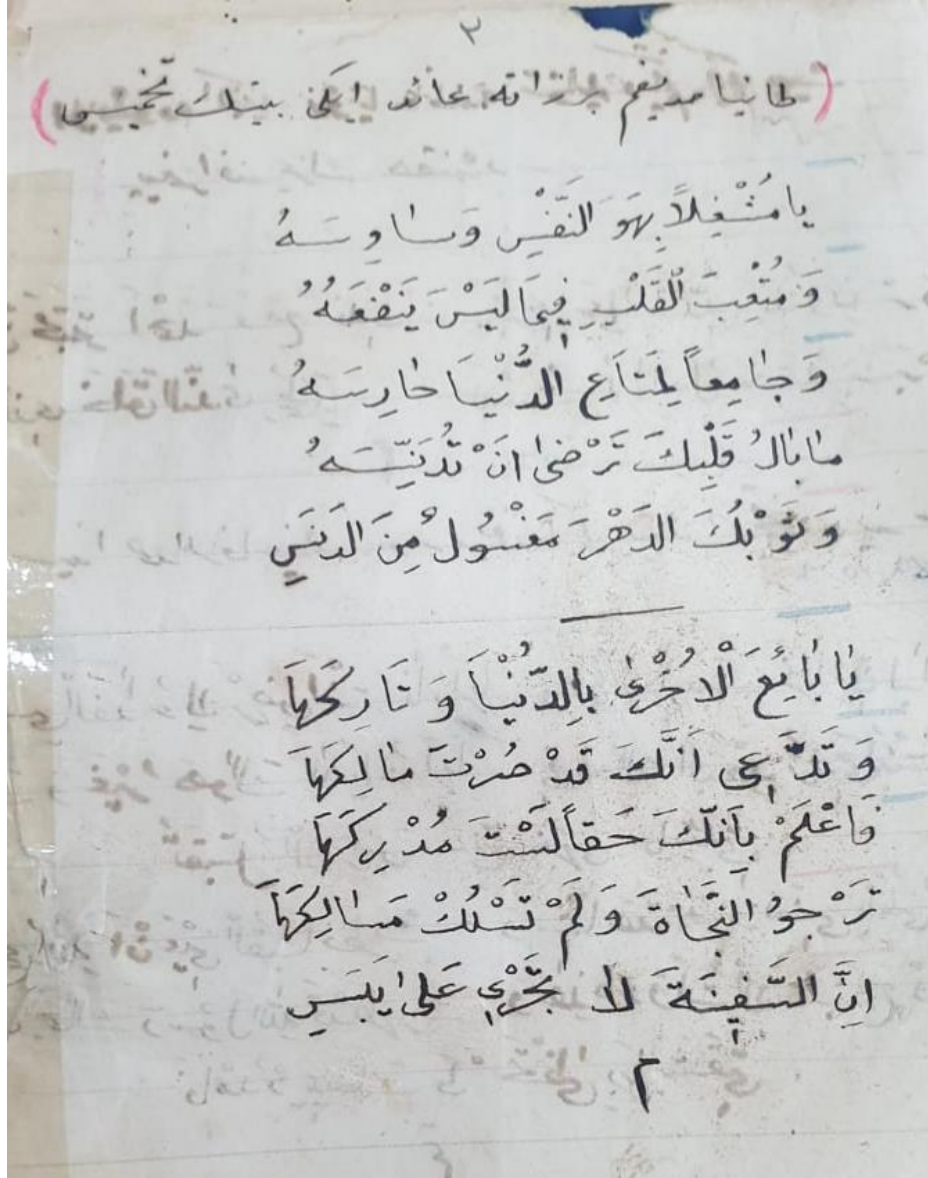 ٣
( طانيامديغم بر ذاته عائد ايكى بيتك تخميس )
يا مُشْغِلاً بِهَوَ النَّفْسِ وَسَاوِسَهُ
وَ مُتْعِبَ الْقَلْبِ فِيمَا لَيْسَ يَنْفَعَهُ
وَ جٰامِعاً لِمَتَاعِ الدُّنْيَا حٰارِسَهُ
مٰا بٰالُ قَلْبِكَ تَرْضىٰ انَْ تُدَنِّسَهُ
وَ ثَوْبُكَ الدَهْرَ مَغْسُولُ مِنَ الدَنَسِ
يٰا بٰائِعَ الْاُخْرىٰ بِالدُّنْيَا وَ تَارِكَهَا
وَ تَدَّعِى اَنَّكَ قَدْ صُرْتَ مٰالِكَهَا
فَاعْلَمْ بِاَنَّكَ حَقاً لَسْتَ مُدْرِكَهَا
تَرْجُو النَّجٰاةَ وَ لَمْ تَسْلُكْ مَسٰالِكَهَا
اِنَّ السَّفِينَةَ لاٰ تَجْرِي عَلىٰ يَبَسِ
٢